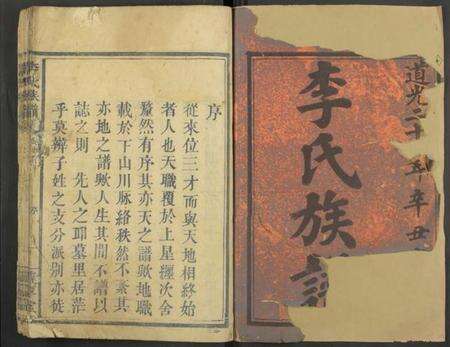 道光二十
辛丑
李氏族譜
序
從來位三才而與天地相終始
者人也天職覆於上星纏次舍
釐然有序其亦天之譜歟地職
載於下山川脉絡秩然不紊其
亦地之譜歟人生其間不譜以
誌之則 先人之邱墓里居茫
乎莫辨子姓之支分派別亦徒